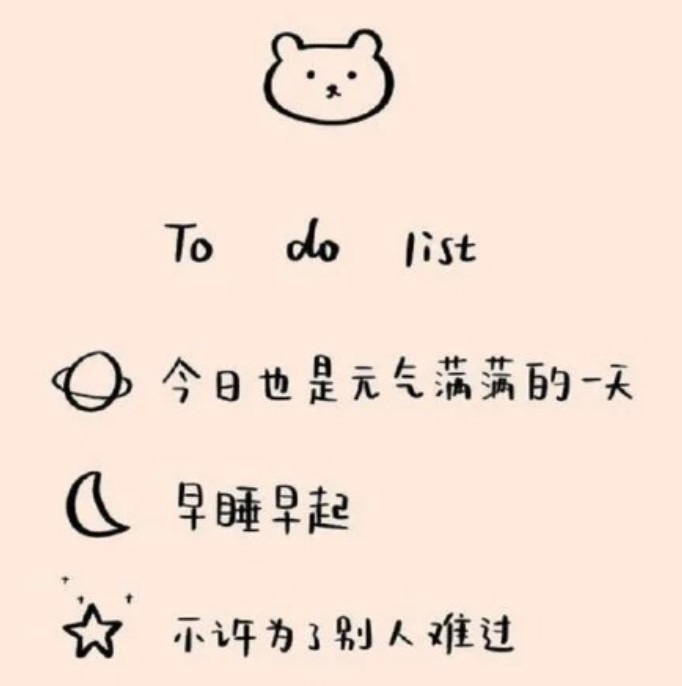 To do list
今日也是元气满满的一天
早睡早起
不许为了别人难过